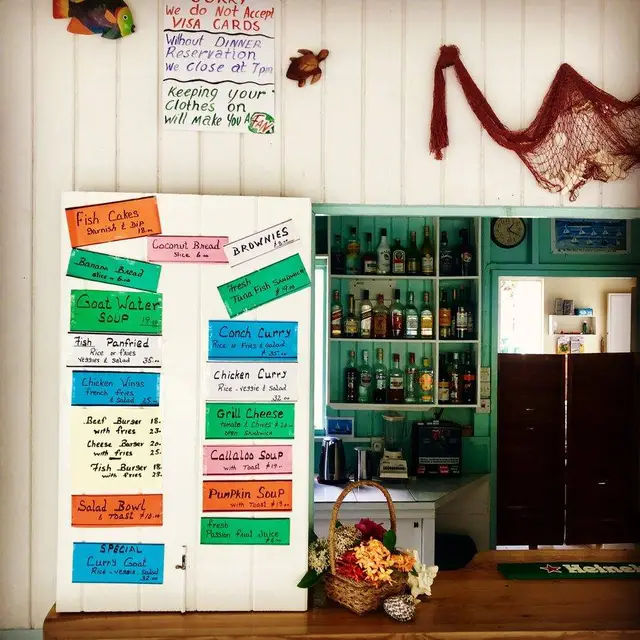 SORRY
We do Not Accept
VISA CARDS
Without DINNER
Reservation
We close at 7pm
Keeping your
Clothes on
will make you A
FAN
Fish Cakes
Garnish & Dip
18.00
Coconut Bread
Slice 6.00
BROWNIES
Banana Bread
Slice 6.00
Fresh
Tuna Fish Sandwich
$19.00
Goat Water
SOUP 19.00
Fish Panfried
Rice or fries
veggies & Salad 35.00
Chicken Wings
french fries
& Salad 25.00
Beef Burger 18.
with fries 23.
Cheese Burger 20.
with fries 25.
Fish Burger 18.
with fries 25.
Salad Bowl
& Toast $18.00
SPECIAL
Curry Goat
Rice-veggie-Salad
32.00
Conch Curry
Rice or Fries & Salad
$35.00
Chicken Curry
Rice-veggie & Salad
32.00
Grill Cheese
tomato & Chives $20.00
open Sandwich
Callaloo Soup
with Toast $19.00
Pumpkin Soup
with Toast $19.00
fresh
Passion fruit Juice
Heineken